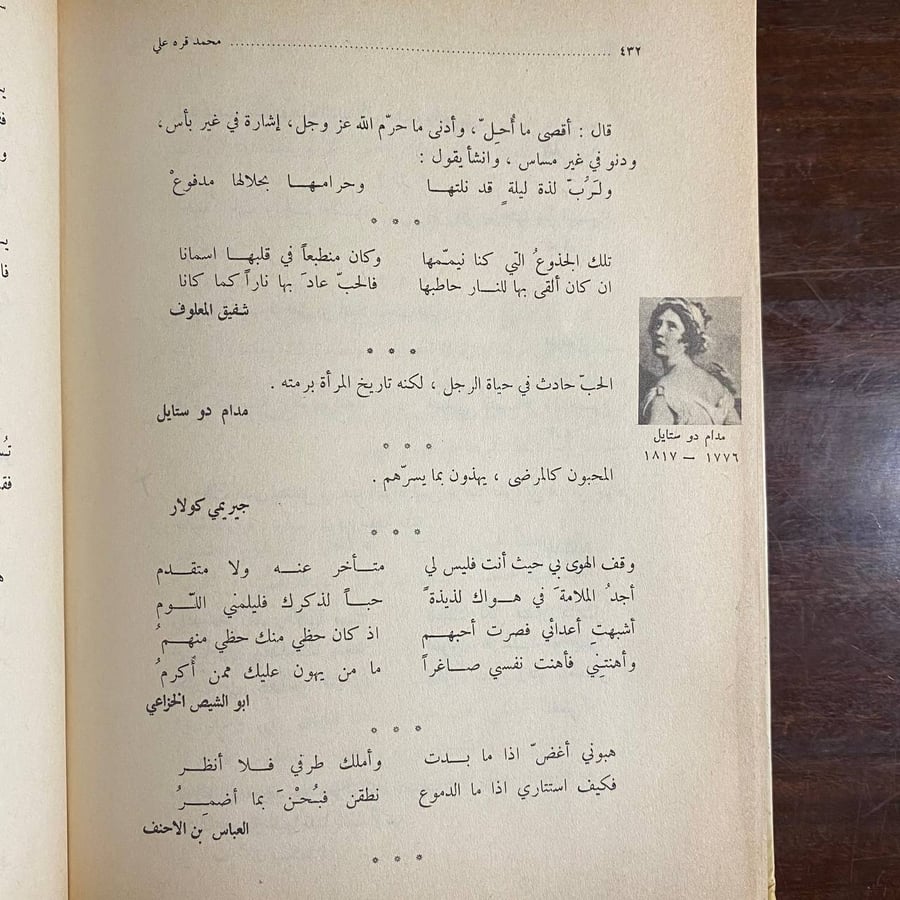 ٤٣٢ ........ محمد قره علي
قال : أقصى ما أُحلّ ، وأدنى ما حرّم الله عز وجل، إشارة في غير بأس،
ودنو في غير مساس ، وانشأ يقول :
ولَرُبّ لذة ليلةٍ قد نلتهـــا وحرامهـــا بحلالها مدفوعْ
* * *
تلك الجذوعُ التي كنا نيمّمها وكان منطبعاً في قلبهـــا اسمانا
ان كان ألقى بها للنـــار حاطبها فالحبّ عادَ بها ناراً كما كانا
شفيق المعلوف
* * *
الحبّ حادث في حياة الرجل ، لكنه تاريخ المرأة برمته .
مدام دو ستايل
مدام دو ستايل
١٧٧٦ – ١٨١٧
* * *
المحبون كالمرضى ، يهذون بما يسرّهم .
جيريمي كولار
* * *
وقف الهوى بي حيث أنت فليس لي متـــأخر عنـــه ولا متقـــدم
أجدُ الملامةَ في هـــواك لذيذةً حبـــاً لذكرك فليلمني اللـــّوم
أشبهتِ أعدائي فصرت أحبهـــم اذ كان حظي منك حظي منهـــمُ
وأهنتِني فأهنت نفسي صـــاغراً ما من يهون عليك ممن أكرمُ
ابو الشيص الخزاعي
* * *
هبوني أغضّ اذا ما بـــدت وأملك طرفي فـــلا أنظـــر
فكيف استتاري اذا ما الدموع نطقن فبُحْنَ بما أضمـــرُ
العباس بن الاحنف
* * *